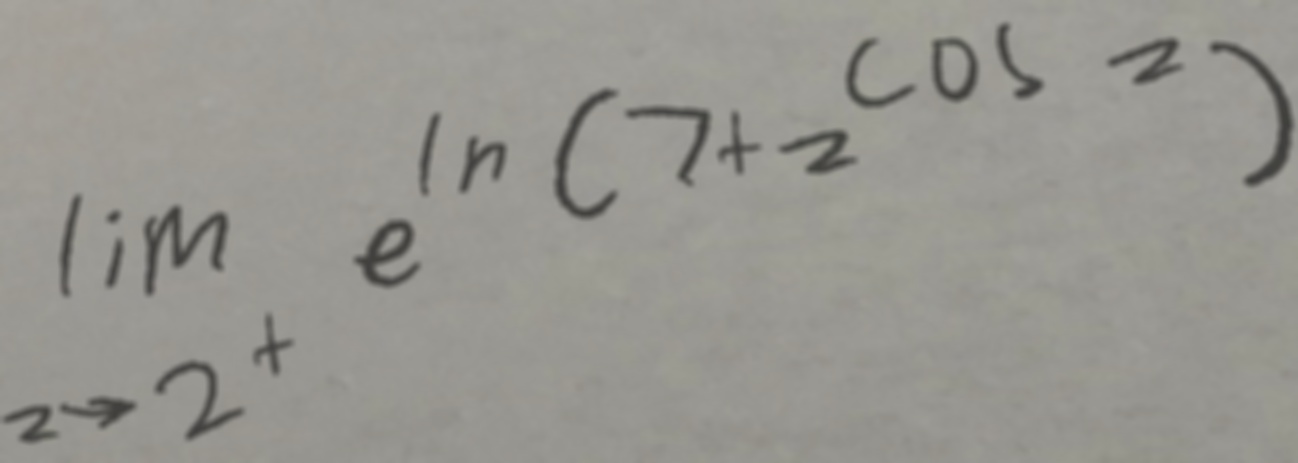 \lim_{z \to 2^+} e^{\ln(7+z^{\cos z})}